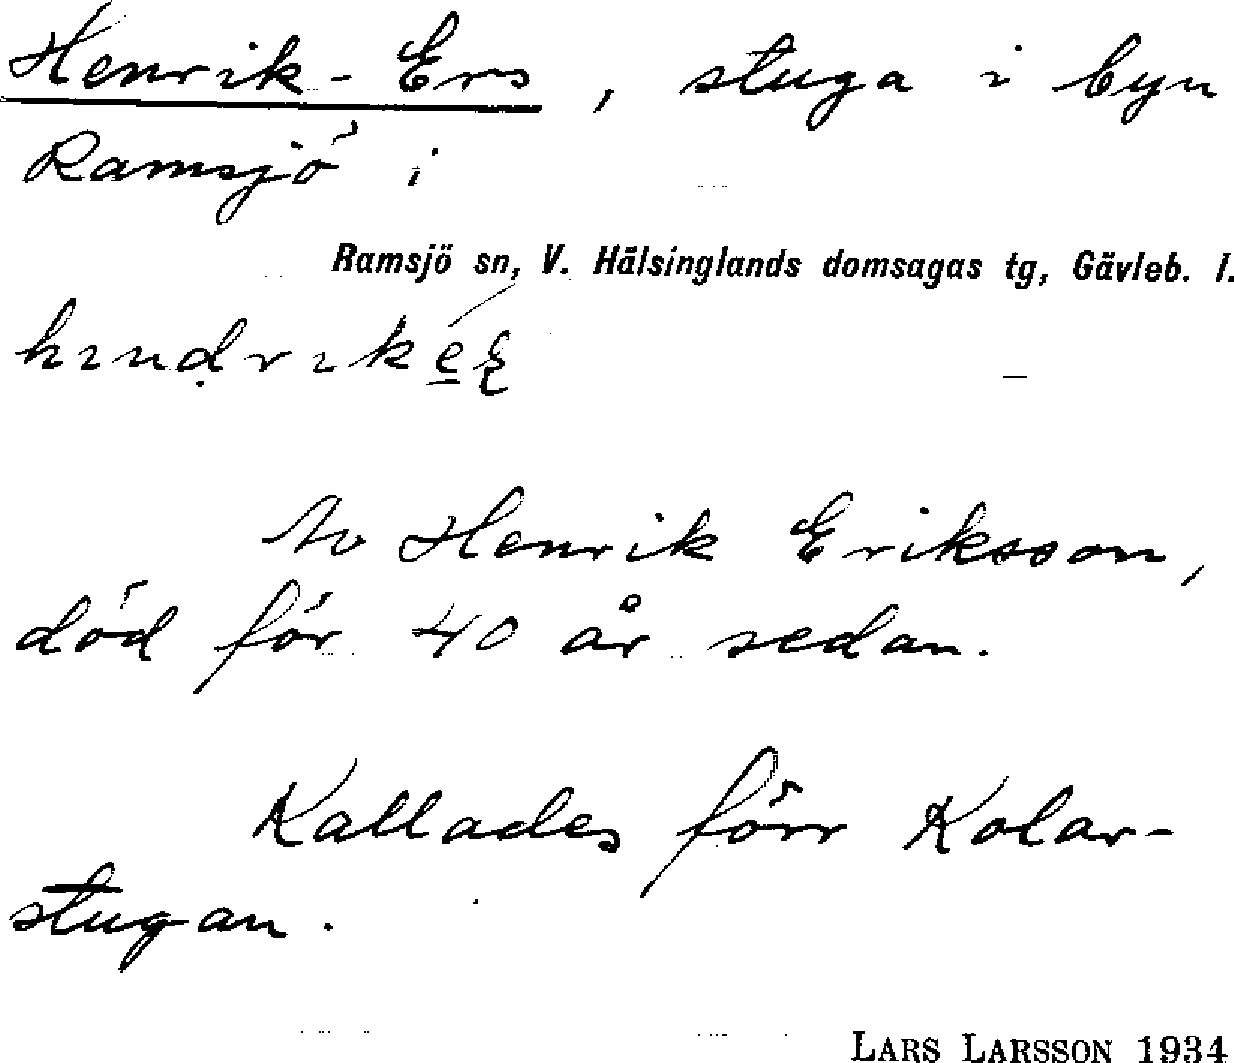 Henrik-Ers, stuga i byn
Ramsjö i
Ramsjö sn, V. Hälsinglands domsagas tg, Gävleb. l.
Av Henrik Eriksson,
död för 40 år sedan.
Kallades förr Kolar-
stugan.
LARS LARSSON 1934